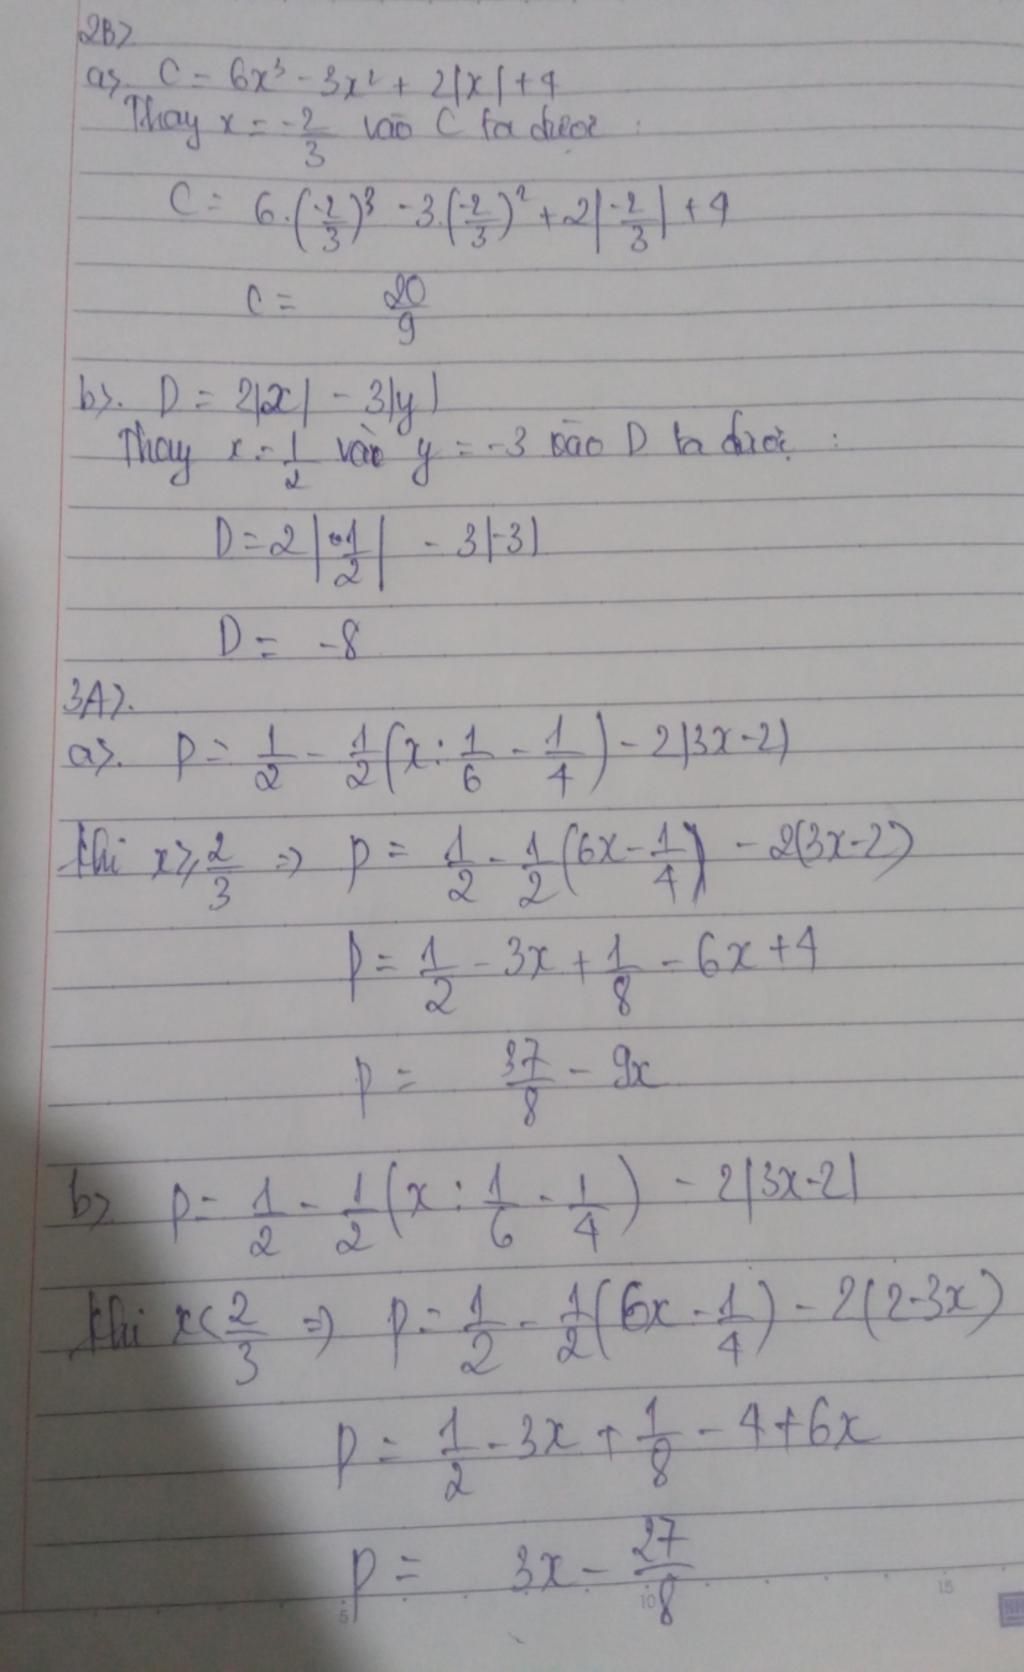 2B>
a>. C = 6x³ - 3x² + 2|x| + 4
Thay x = -2/3 vào C ta được :
C = 6.(-2/3)³ - 3.(-2/3)² + 2|-2/3| + 4
C = 20/9
b>. D = 2|x| - 3|y|
Thay x = 1/2 và y = -3 vào D ta được :
D = 2|1/2| - 3|-3|
D = -8
3A>.
a>. P = 1/2 - 1/2(x : 1/6 - 1/4) - 2|3x-2|
Khi x ⩾ 2/3 => P = 1/2 - 1/2(6x - 1/4) - 2(3x-2)
P = 1/2 - 3x + 1/8 - 6x + 4
P = 37/8 - 9x
b> P = 1/2 - 1/2(x : 1/6 - 1/4) - 2|3x-2|
Khi x < 2/3 => P = 1/2 - 1/2(6x - 1/4) - 2(2-3x)
P = 1/2 - 3x + 1/8 - 4 + 6x
P = 3x - 27/8
5 10 15